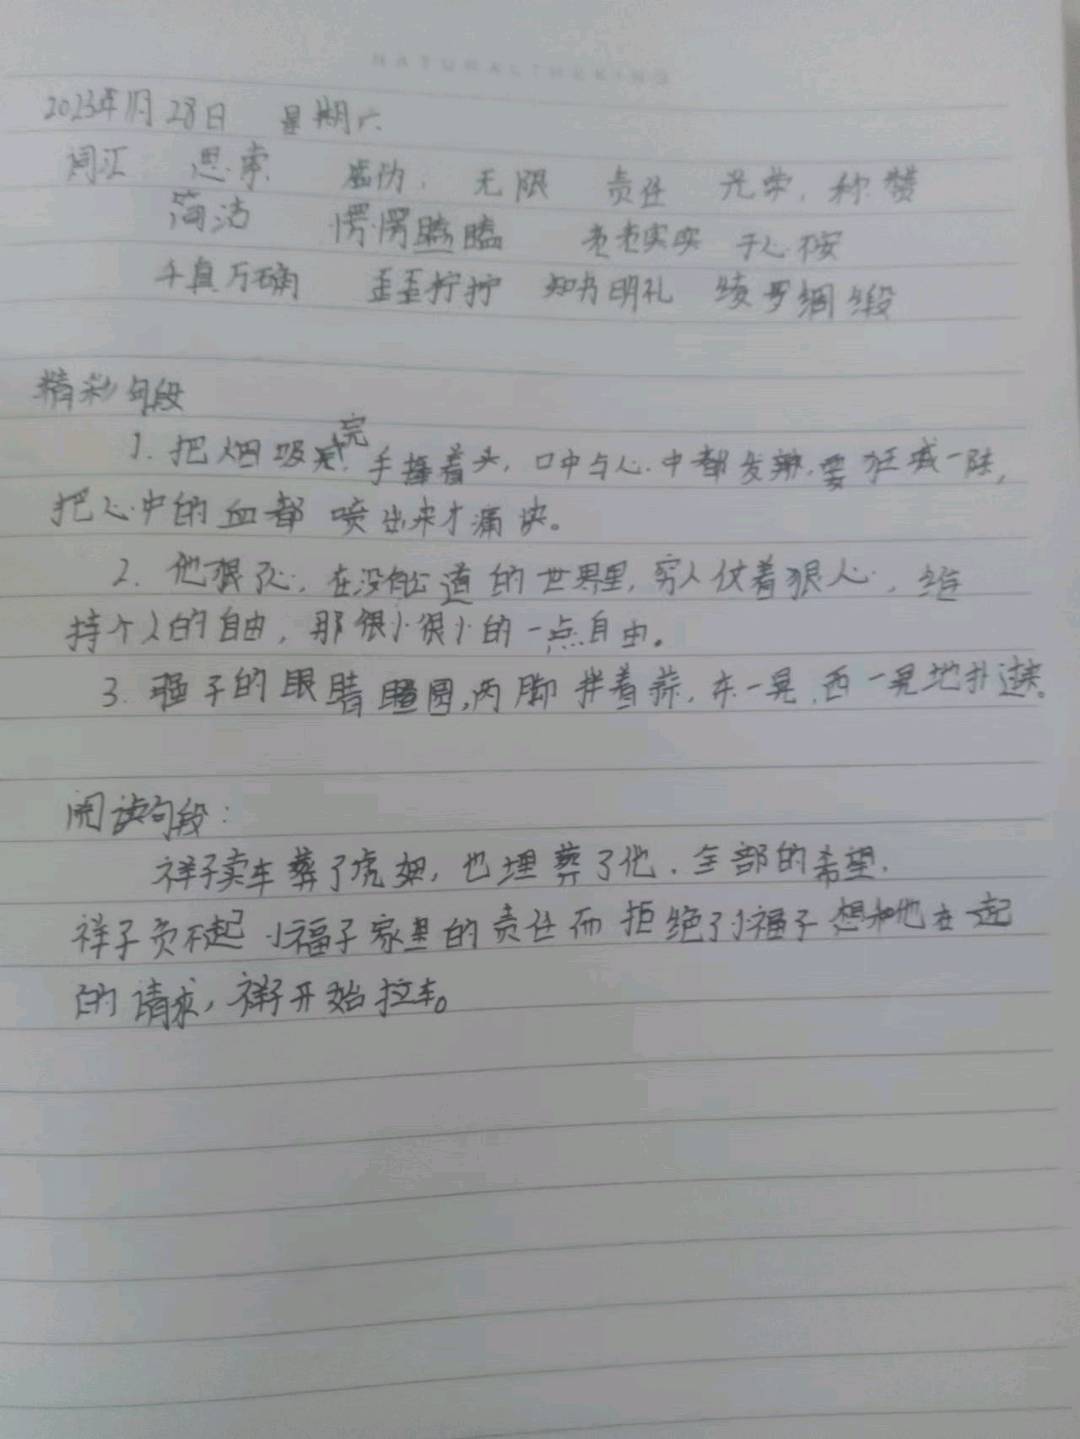 NATURALTHEKING
2023年1月28日 星期六
词汇 思索 虚伪、无限 责任 光荣、称赞
简洁 愣愣瞌瞌 老老实实 于心不安
千真万确 歪歪拧拧 知书明礼 绫罗绸缎
精彩句段
1. 把烟吸完 手捧着头,口中与心中都发辣,要狂喊一阵,
把心中的血都喷出来才痛快。
2. 他狠心,在没有公道的世界里,穷人仗着狠心,维
持个人的自由,那很小很小的一点自由。
3. 瞎子的眼睛瞪圆,两脚拌着蒜,东一晃,西一晃地扑过来。
阅读句段:
祥子卖车葬了虎妞,也埋葬了他、全部的希望.
祥子负不起小福子家里的责任而拒绝了小福子想和他在一起
的请求,祥子开始拉车。